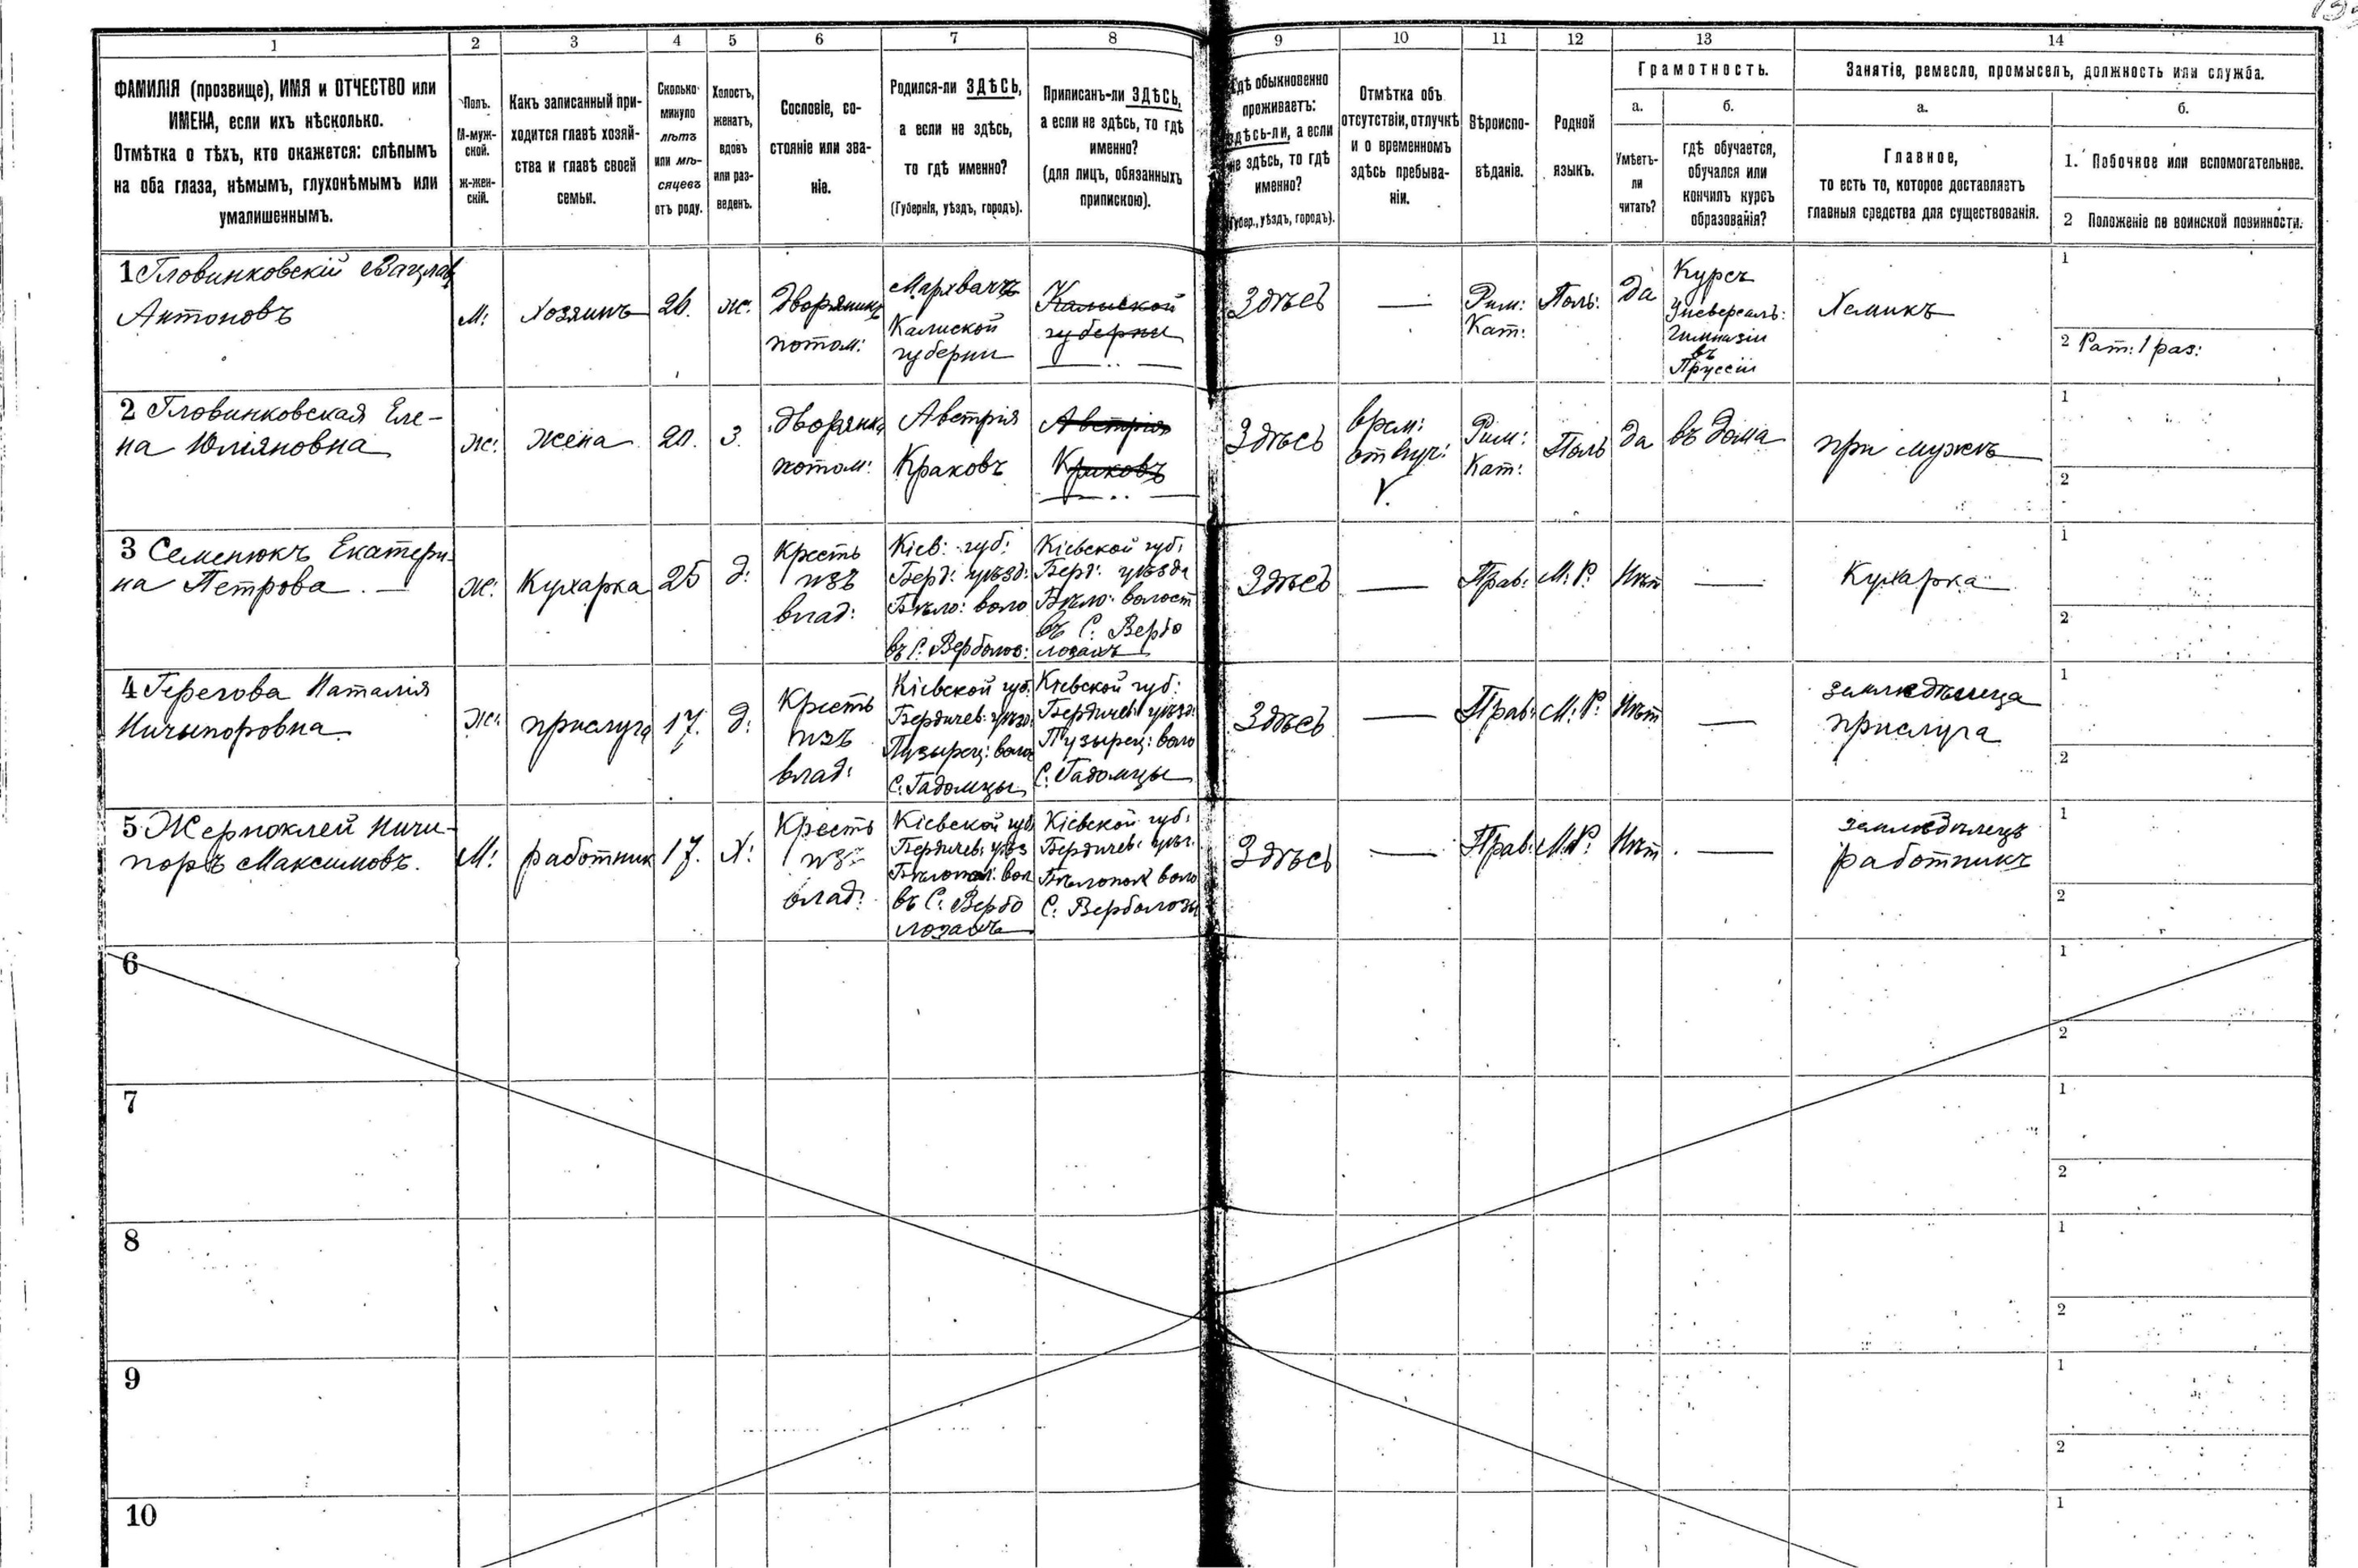 1
2
3
4
5
6
7
8
9
10
11
12
13
14
ФАМИЛІЯ (прозвище), ИМЯ и ОТЧЕСТВО или
ИМЕНА, если ихъ нѣсколько.
Отмѣтка о тѣхъ, кто окажется: слѣпымъ
на оба глаза, нѣмымъ, глухонѣмымъ или
умалишеннымъ.
Полъ.
М-муж-
ской.
Ж-жен-
скій.
Какъ записанный при-
ходится главѣ хозяй-
ства и главѣ своей
семьи.
Сколько
минуло
лѣтъ
или мѣ-
сяцевъ
отъ роду.
Холостъ,
женатъ,
вдовъ
или раз-
веденъ.
Сословіе, со-
стояніе или зва-
ніе.
Родился-ли ЗДѢСЬ,
а если не здѣсь,
то гдѣ именно?
(Губернія, уѣздъ, городъ).
Приписанъ-ли ЗДѢСЬ,
а если не здѣсь, то гдѣ
именно?
(для лицъ, обязанныхъ
припискою).
Гдѣ обыкновенно
проживаетъ:
здѣсь-ли, а если
не здѣсь, то гдѣ
именно?
(Губер., уѣздъ, городъ).
Отмѣтка объ
отсутствіи, отлучкѣ
и о временномъ
здѣсь пребыва-
ніи.
Вѣроиспо-
вѣданіе.
Родной
языкъ.
Грамотность.
а.
Умѣетъ-
ли
читать?
б.
гдѣ обучается,
обучался или
кончилъ курсъ
образованія?
Занятіе, ремесло, промыселъ, должность или служба.
а.
Главное,
то есть то, которое доставляетъ
главныя средства для существованія.
б.
1. Побочное или вспомогательное.
2 Положеніе по воинской повинности.
1 Гловинковскій Вацлав
Антоновъ
М:
Хозяинъ
26.
ж:
Дворянинъ
потом:
Калиской
губерни
Калиской
губерни
Здѣсь
—
Рим:
Кат:
Поль:
Да
Курсъ
Гимназіи
въ
Пруссіи
Химикъ
1
2 Рат: 1 раз:
2 Гловинковская Еле-
на Юліяновна
ж:
жена
20.
З.
дворянка
потом:
Австрія
Краковъ
Австрія
Краковъ
Здѣсь
врем:
отлуч:
Рим:
Кат:
Поль
да
въ дома
при мужѣ
1
2
3 Семенюкъ Екатери-
на Петрова. —
ж:
Кухарка
25
д:
Кресть
изъ
влад:
Кіев: губ:
Берд: уѣзд:
Бѣло: воло
въ С. Верболоз:
Кіевской губ:
Берд: уѣзда
Бѣло: волост
въ С. Вербо
лозахъ
Здѣсь
—
Прав:
М: Р:
Нѣт
—
Кухарка
1
2
4 Герегова Наталія
Ничыпоровна
ж:
прислуга
17.
д:
Кресть
изъ
влад:
Кіевской губ:
Бердичев: уѣзд:
Пузырец: воло
С: Гадомцы
Кіевской губ:
Бердичев: уѣзд:
Пузырец: воло
С: Гадомцы
Здѣсь
—
Прав:
М: Р:
Нѣт
—
прислуга
1
2
5 Жерноклей Ничи-
поръ Максимовъ.
М:
работник
17.
Х:
Кресть
изъ
влад:
Кіевской губ:
Бердичев: уѣз
Бѣлопол: вол
въ С. Вербо
лозахъ
Кіевской губ:
Бердичев: уѣз:
Бѣлопол воло
С. Верболозы
Здѣсь
—
Прав:
М: Р:
Нѣт
—
землѣдѣлецъ
работникъ
1
2
6
1
2
7
1
2
8
1
2
9
1
2
10
1